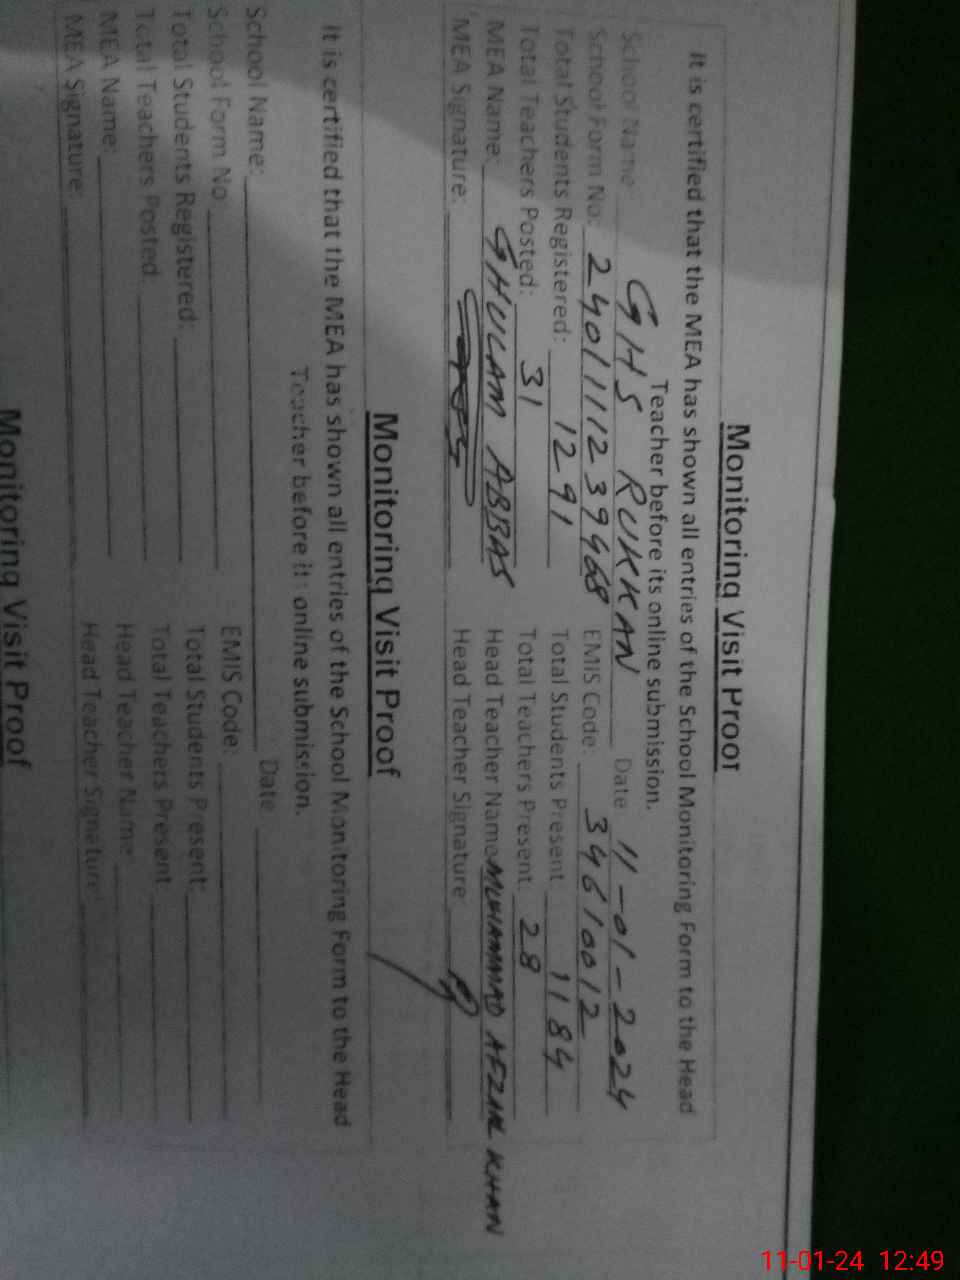 Monitoring Visit Proof
It is certified that the MEA has shown all entries of the School Monitoring Form to the Head
Teacher before its online submission.
School Name GHS RUKKAN Date 11-01-2024
School Form No: 2401111239468 EMIS Code: 34610012
Total Students Registered: 1291 Total Students Present: 1184
Total Teachers Posted: 31 Total Teachers Present: 28
MEA Name: GHULAM ABBAS Head Teacher Name MUHAMMAD AFZAL KHAN
MEA Signature: Head Teacher Signature
Monitoring Visit Proof
It is certified that the MEA has shown all entries of the School Monitoring Form to the Head
Teacher before its online submission.
School Name: Date
School Form No EMIS Code:
Total Students Registered: Total Students Present:
Total Teachers Posted: Total Teachers Present:
MEA Name: Head Teacher Name
MEA Signature: Head Teacher Signature
Monitoring Visit Proof
11-01-24 12:49